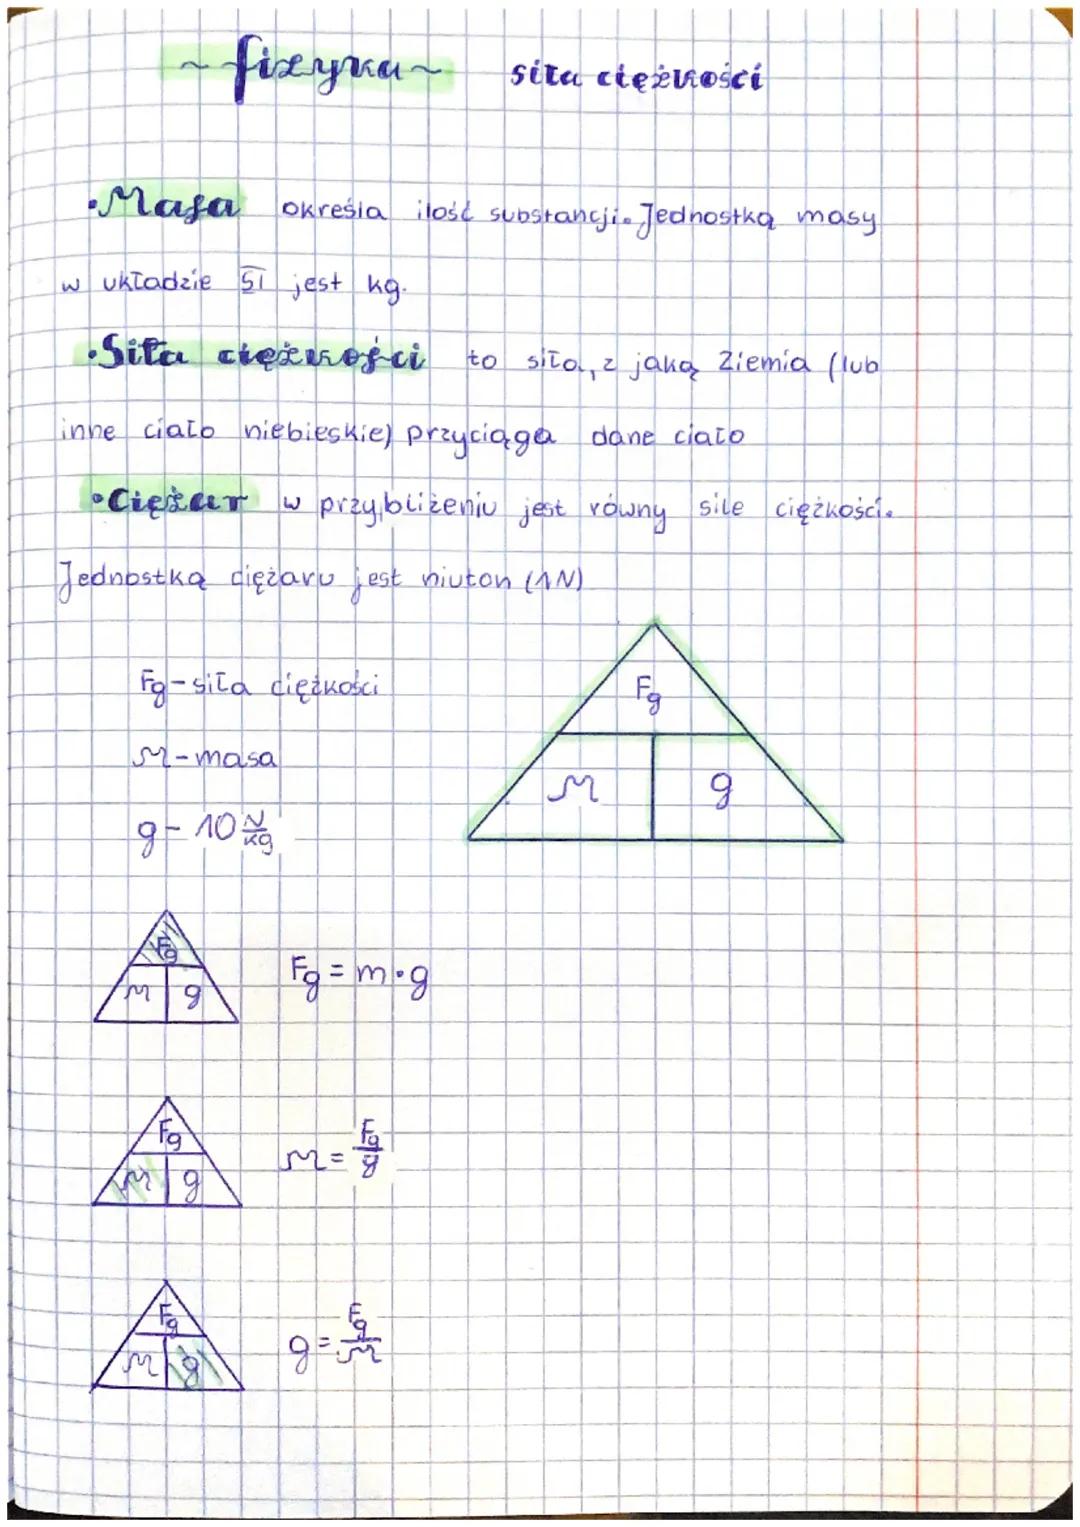 ~fizyka~ siła ciężkości
•Masa określa ilość substancji. Jednostką masy
w układzie SI jest kg.
•Siła ciężkości to siła, z jaką Ziemia (lub
inne ciało niebieskie) przyciąga dane ciało
•Ciężar w przybliżeniu jest równy sile ciężkości.
Jednostką ciężaru jest niuton (1N)
Fg-siła ciężkości
m-masa
g- 10 N/kg
Fg
m g
Fg
m g
Fg = m·g
Fg
m g
m = Fg/g
Fg
m g
g = Fg/m